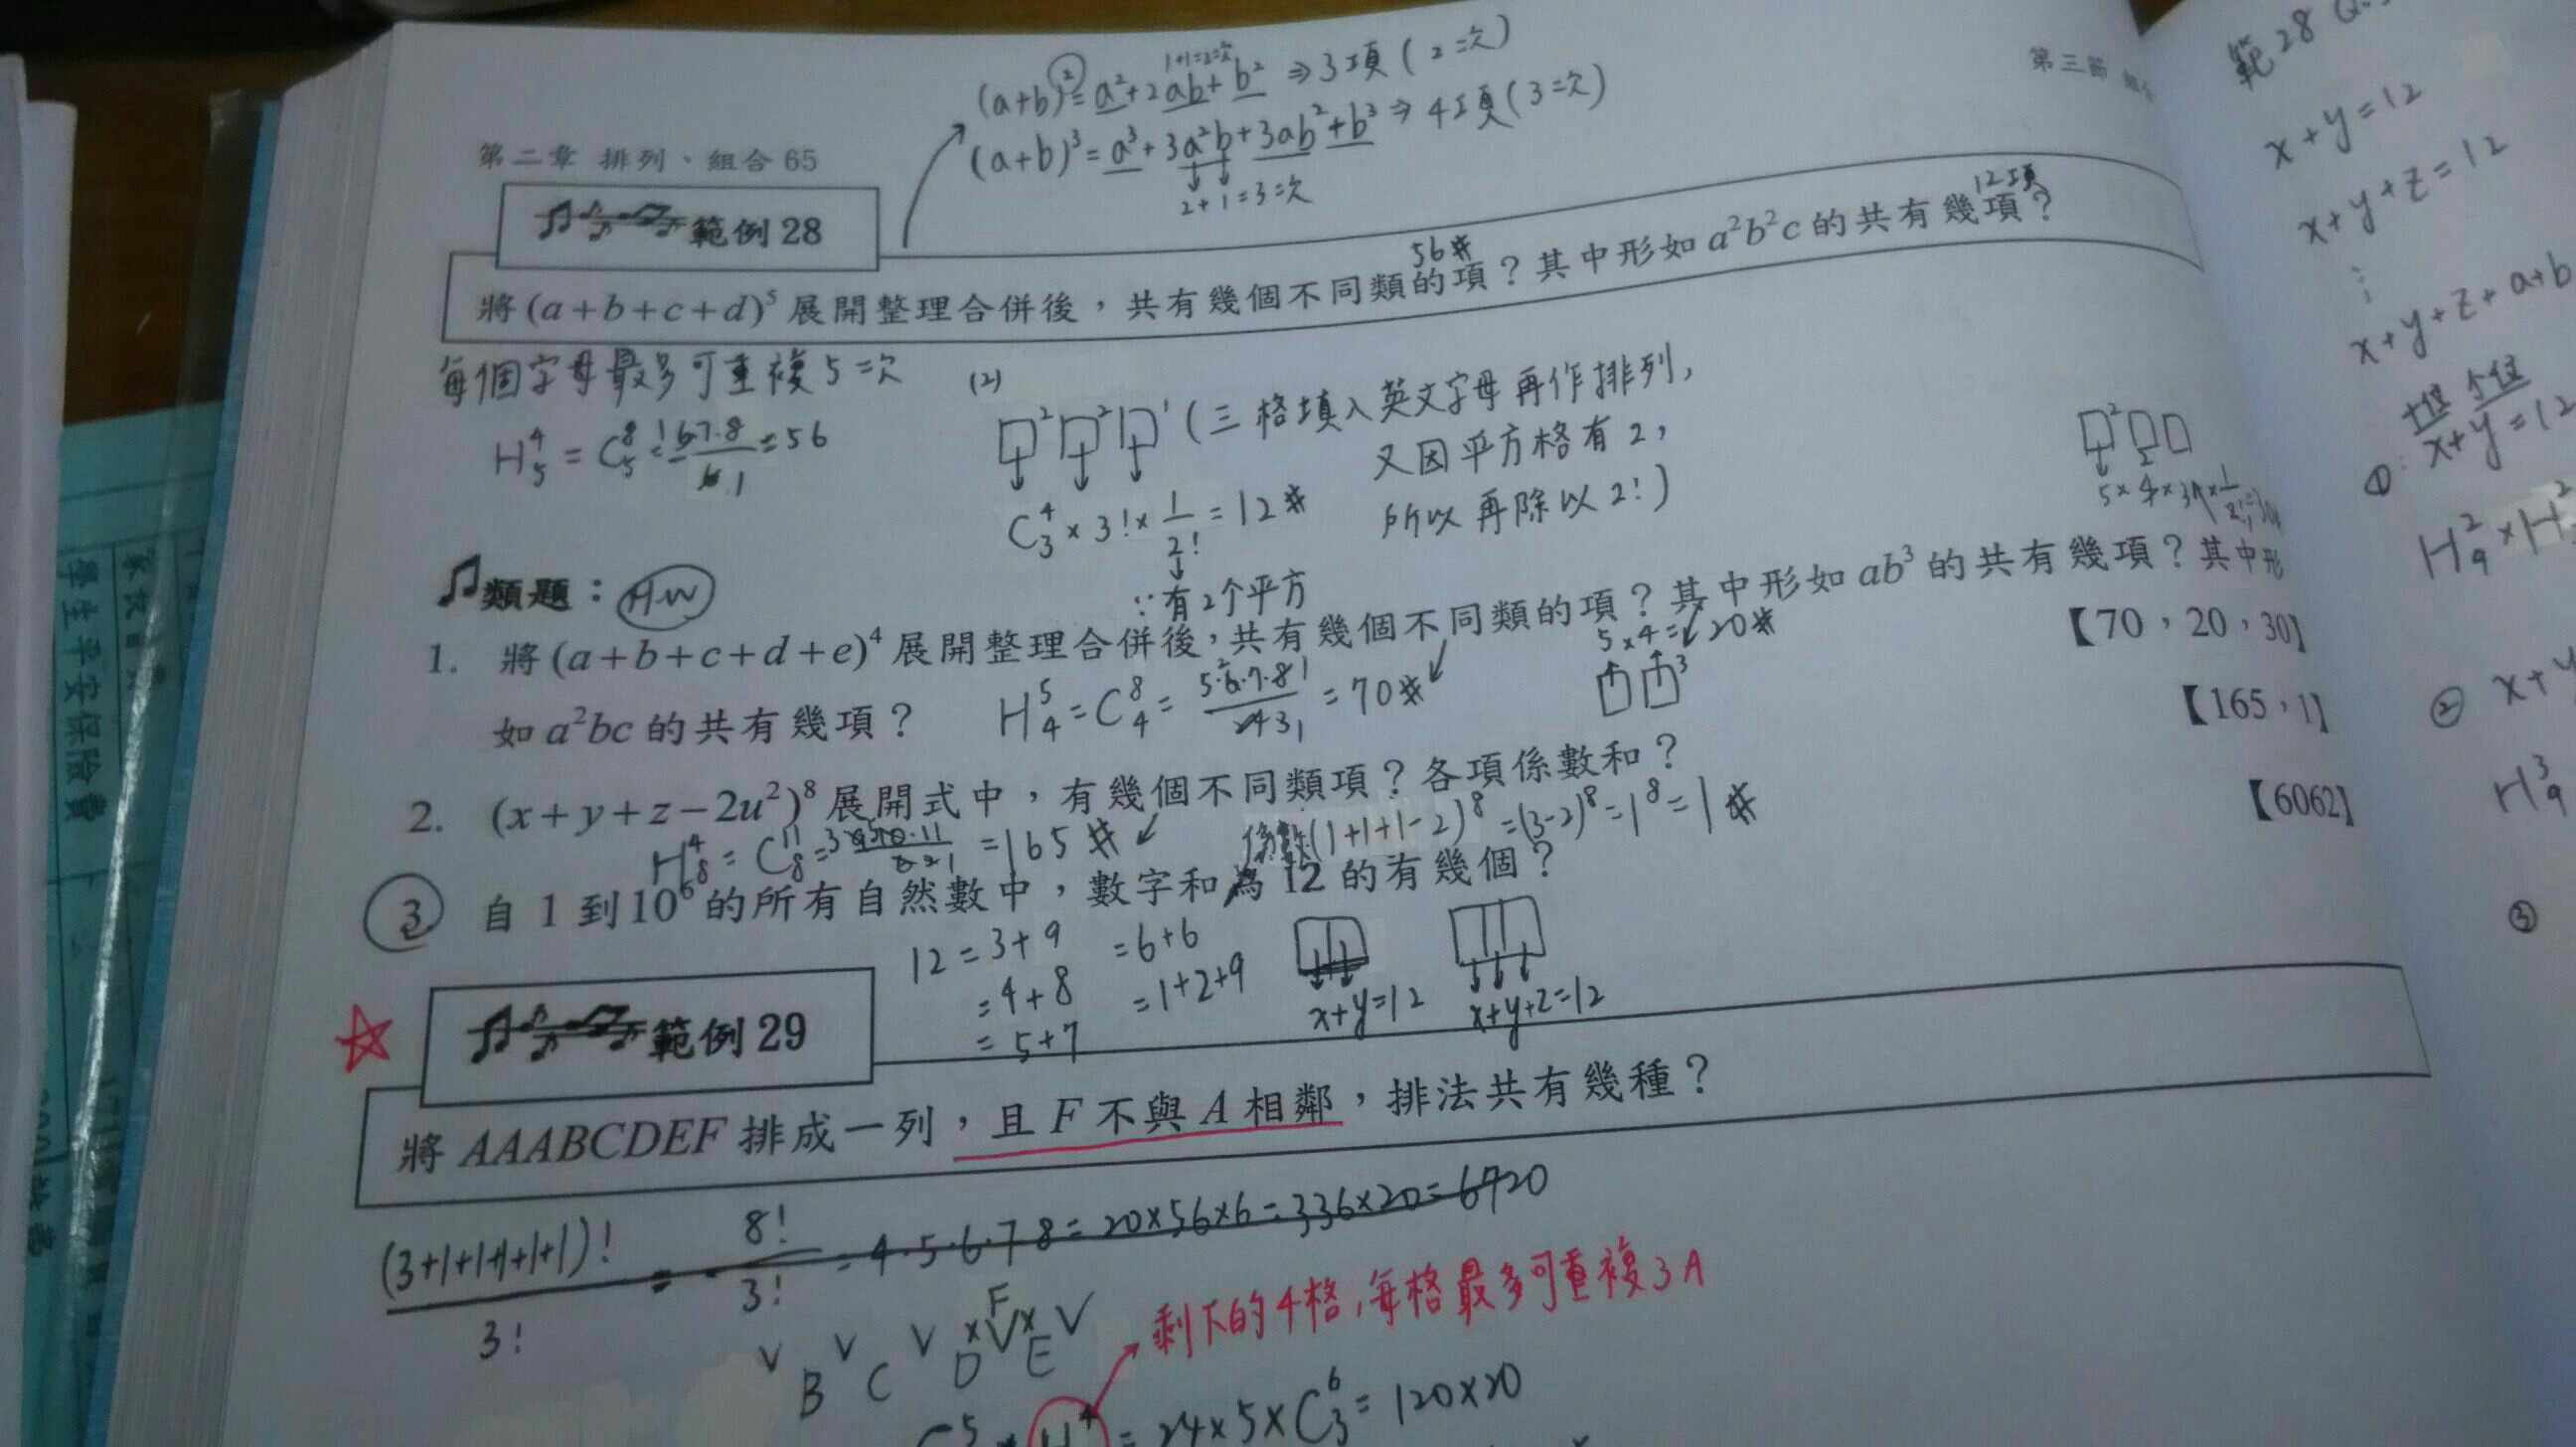 (a+b)²=a²+2ab+b² ⇒3項(2次)
1+1=2次
(a+b)³=a³+3a²b+3ab²+b³⇒4項(3次)
2+1=3次
第二章 排列、組合 65
第三節
範例 28
56# 12項
將(a+b+c+d)⁵展開整理合併後，共有幾個不同類的項？其中形如a²b²c的共有幾項？
每個字母最多可重複5次
H⁴₅=C⁸₅= 6·7·8 =56
(2)
(三格填入英文字母再作排列,
又因平方格有2,
所以再除以2!)
C⁴₃×3!×1/2!=12#
∵有2个平方
類題：HW
1. 將(a+b+c+d+e)⁴展開整理合併後，共有幾個不同類的項？其中形如ab³的共有幾項？其中形
如a²bc的共有幾項？ 【70，20，30】
H⁵₄=C⁸₄=5·6·7·8 =70#
5×4=20#
2. (x+y+z−2u²)⁸展開式中，有幾個不同類項？各項係數和？ 【165，1】
H⁴₈=C¹¹₈= =165#
係數(1+1+1-2)⁸=(3-2)⁸=1⁸=1#
3 自1到10⁶的所有自然數中，數字和為12的有幾個？ 【6062】
12=3+9 =6+6
=4+8 =1+2+9
=5+7
x+y=12 x+y+z=12
範例 29
將AAABCDEF排成一列，且F不與A相鄰，排法共有幾種？
(3+1+1+1+1+1)!/3! = 8!/3! =4·5·6·7·8=20×56×6=336×20=6720
F
B C D E
剩下的4格,每格最多可重複3A
=24×5×C⁶₃=120×20
範28
x+y=12
x+y+z=12
⋮
x+y+z+a+b
十位 个位
①: x+y=12
H²₉×H²
② x+y
H³₉
③